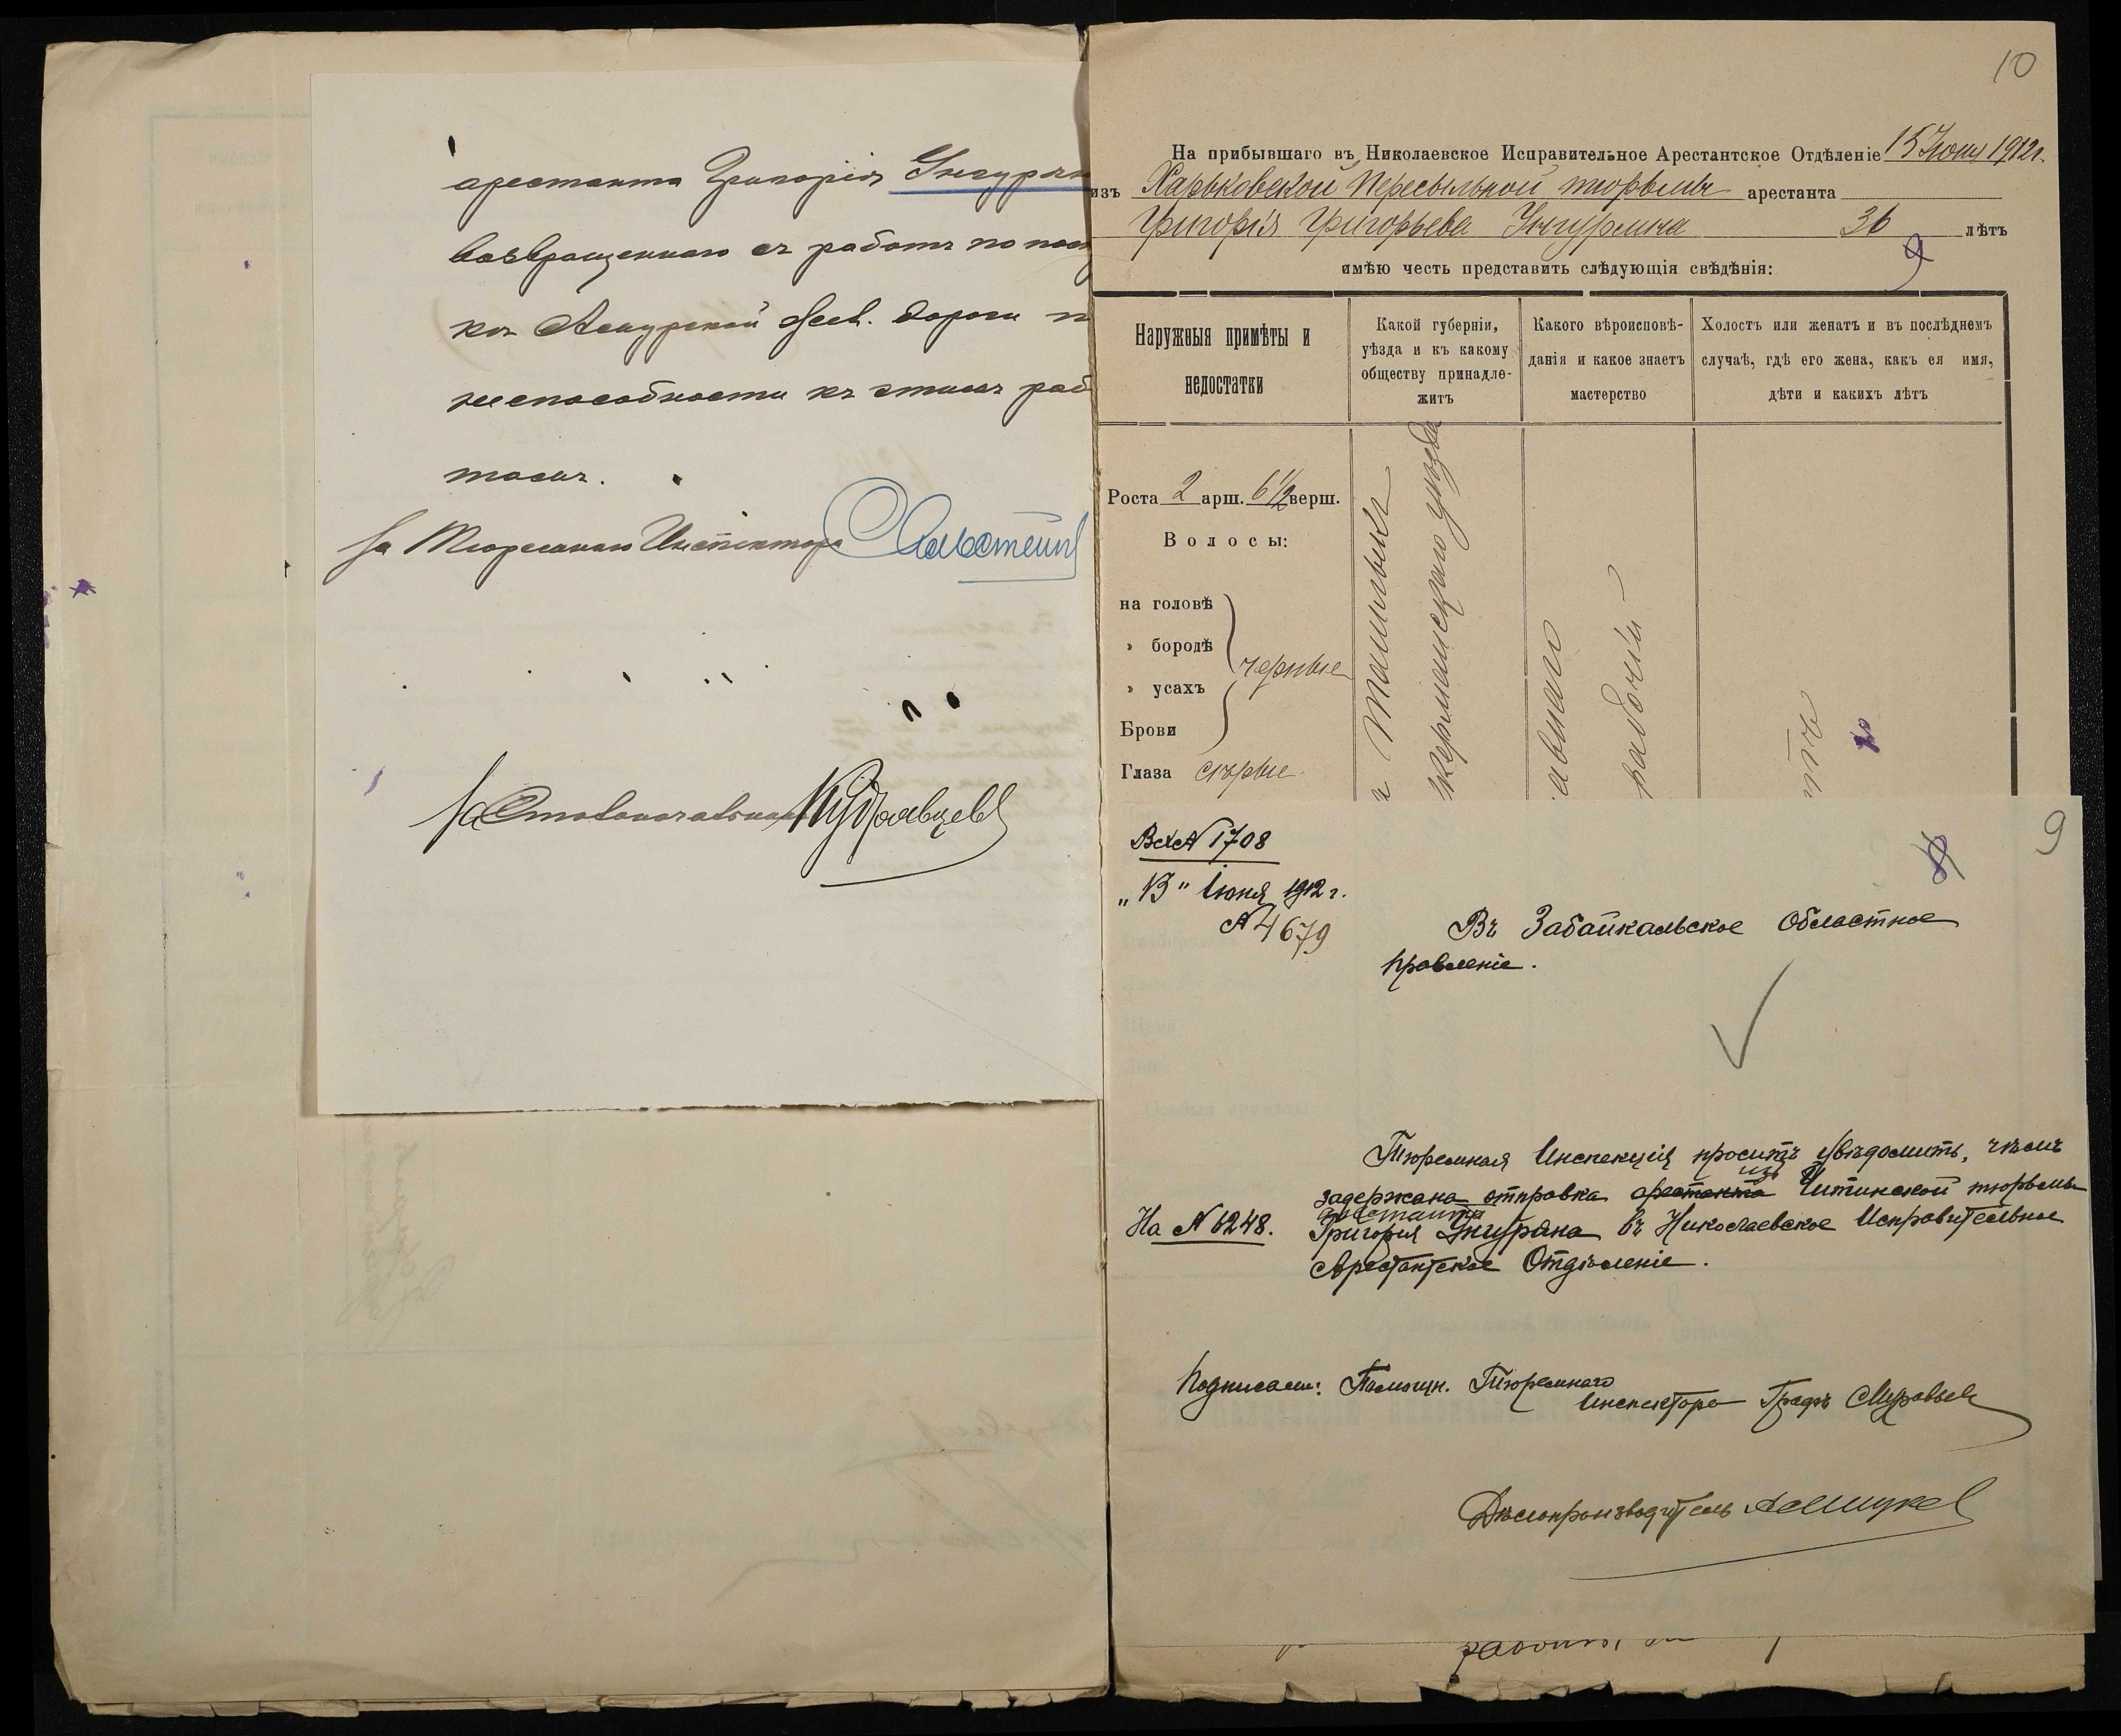 арестанта Григорія Унгурян
возвращеннаго съ работъ по пост
кѣ Амурской жел. дороги п
неспособности къ этимъ раб
тамъ.
За Тюремнаго Инспектора
За Столоначальника Кудрявцевъ
10
На прибывшаго въ Николаевское Исправительное Арестантское Отдѣленіе 15 Іюня 1912 г.
изъ Харьковской пересыльной тюрьмы арестанта
Григорія Григорьева Унгуряна 36 лѣтъ
9
имѣю честь представить слѣдующія свѣдѣнія:
Наружныя примѣты и
недостатки
Какой губерніи,
уѣзда и къ какому
обществу принадле-
житъ
Какого вѣроисповѣ-
данія и какое знаетъ
мастерство
Холостъ или женатъ и въ послѣднемъ
случаѣ, гдѣ его жена, какъ ея имя,
дѣти и какихъ лѣтъ
Роста 2 арш. 6 1/2 верш.
Волосы:
на головѣ
» бородѣ
» усахъ
Брови
черные
Глаза сѣрые
ккерманскаго уѣзда
авнаго
рабочій
9
Вх. № 1708
„13" Іюня 1912 г.
№ 4679
Въ Забайкальское Областное
Правленіе.
Тюремная Инспекція проситъ увѣдомить, чѣмъ
задержана отправка арестанта изъ Читинской тюрьмы
На № 6248.
арестанта
Григорія Унгуряна въ Николаевское Исправительное
Арестантское Отдѣленіе.
Подписали: Помощн. Тюремнаго
Инспектора Графъ Муравьевъ
Дѣлопроизводитель